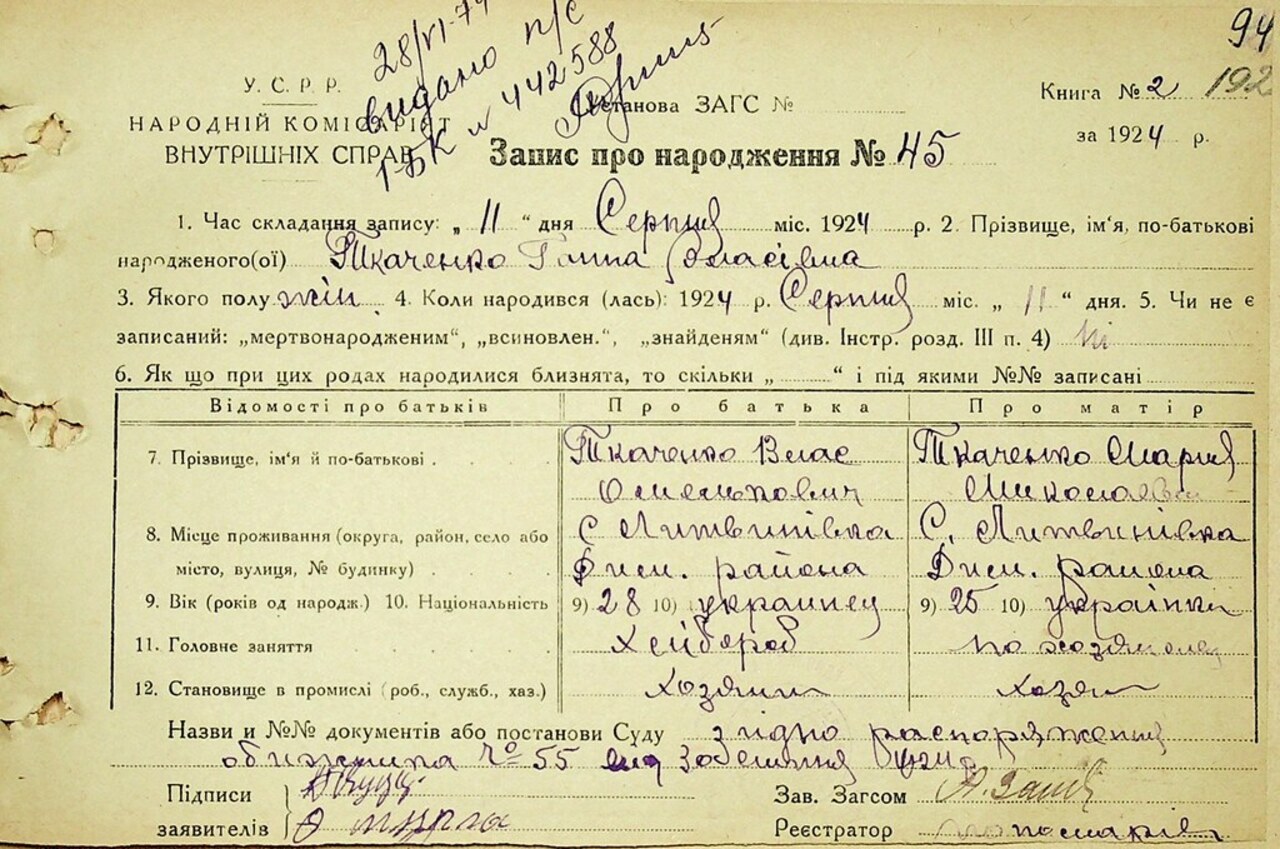 94
28/VI-74
видано п/с
І-БК № 442588
У. С. Р. Р.
НАРОДНІЙ КОМІСАРІЯТ
ВНУТРІШНІХ СПРАВ
Установа ЗАГС №
Книга № 2 192
за 1924 р.
Запис про народження № 45
1. Час складання запису: „ 11 “ дня Серпня міс. 1924 р. 2. Прізвище, ім'я, по-батькові
народженого(ої) Ткаченко Ганна Власівна
3. Якого полу жін. 4. Коли народився (лась): 1924 р. Серпня міс. „ 11 “ дня. 5. Чи не є
записаний: „мертвонародженим“, „всиновлен.“, „знайденям“ (див. Інстр. розд. III п. 4) Ні
6. Як що при цих родах народилися близнята, то скільки „ “ і під якими №№ записані
Відомості про батьків Про батька Про матір
7. Прізвище, ім'я й по-батькові . Ткаченко Влас Ткаченко Мария
Омелькович Миколаевна
8. Місце проживання (округа, район, село або С Литвинівка С. Литвинівка
місто, вулиця, № будинку) . Дим. района Дим. района
9. Вік (років од народж.) 10. Національність 9) 28 10) украинец 9) 25 10) українка
11. Головне заняття Хлібороб по
12. Становище в промислі (роб., служб., хаз.) хозяин хозя
Назви и №№ документів або постанови Суду згідно распоряжения
№ 55
Підписи
заявителів
Зав. Загсом
Реєстратор